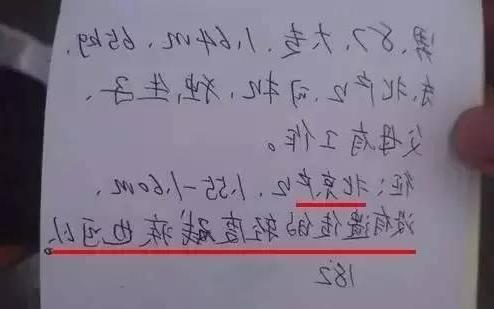 男、87、大专、1.64m、65kg、
北户口、司机、独生子、
父母有工作。
征:北京户口、1.55-1.60m、
没有遗传的轻度残疾也可以。
182